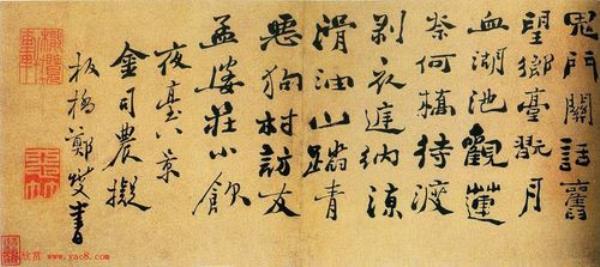 鬼門關話舊
望鄉臺翫月
血湖池觀蓮
柰何橋待渡
剥衣庭納涼
滑油山踏青
惡狗村訪友
孟婆莊小飲
夜臺八景
金司農擬
板橋鄭燮書
欣赏 www.yac8.com